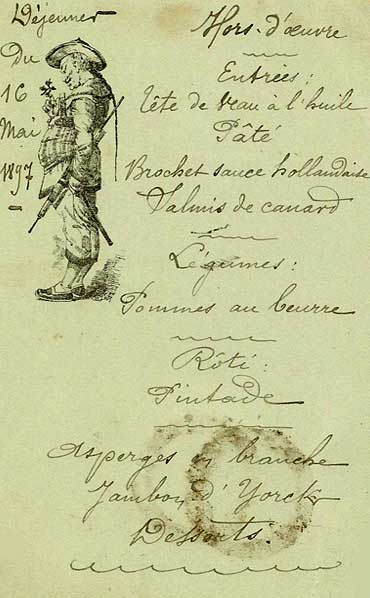 Déjeuner
Du
16
Mai
1897
Hors-d'œuvre
Entrées :
Tête de veau à l'huile
Pâté
Brochet sauce hollandaise
Salmis de canard
Légumes :
Pommes au beurre
Rôti :
Pintade
Asperges en branche
Jambon d'Yorck
Desserts.